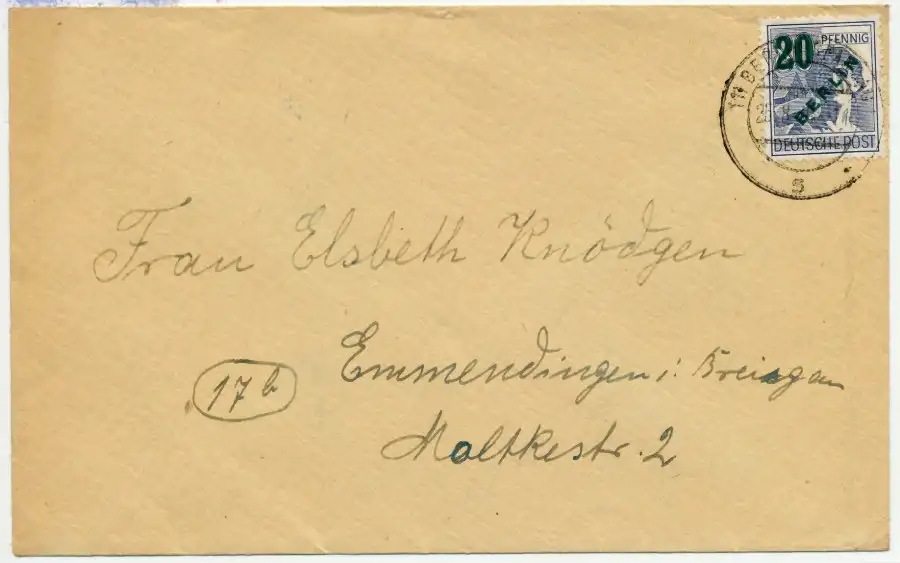 20 PFENNIG
BERLIN
DEUTSCHE POST
s
Frau Elsbeth Knödgen
Emmendingen i. Breisgau
17b
Moltkestr. 2